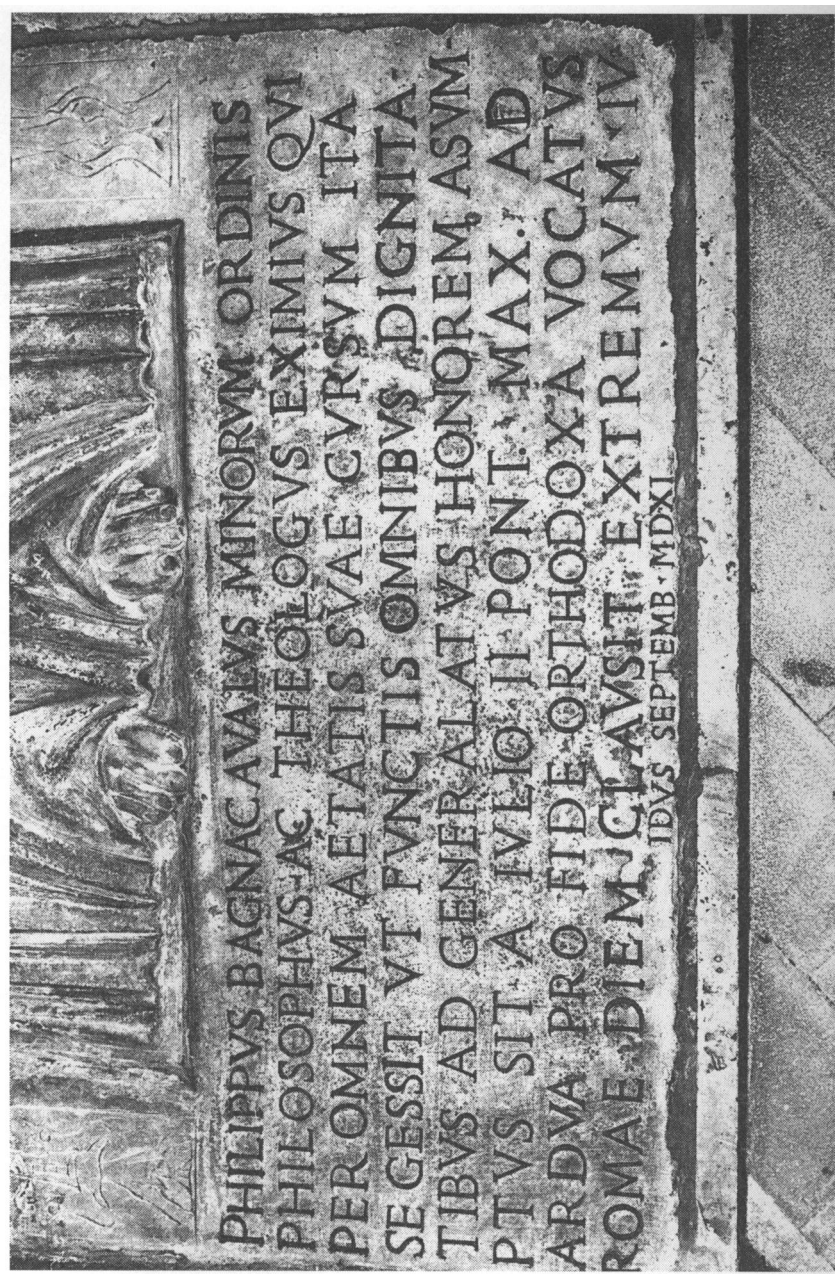 PHILIPPVS BAGNACAVALVS MINORVM ORDINIS
PHILOSOPHVS AC THEOLOGVS EXIMIVS QVI
PER OMNEM AETATIS SVAE CVRSVM ITA
SE GESSIT VT FVNCTIS OMNIBVS DIGNITA
TIBVS AD GENERALATVS HONOREM ASVM-
PTVS SIT A IVLIO II PONT. MAX. AD
ARDVA PRO FIDE ORTHODOXA VOCATVS
ROMAE DIEM CLAVSIT EXTREMVM IV
IDVS SEPTEMB · MDXI